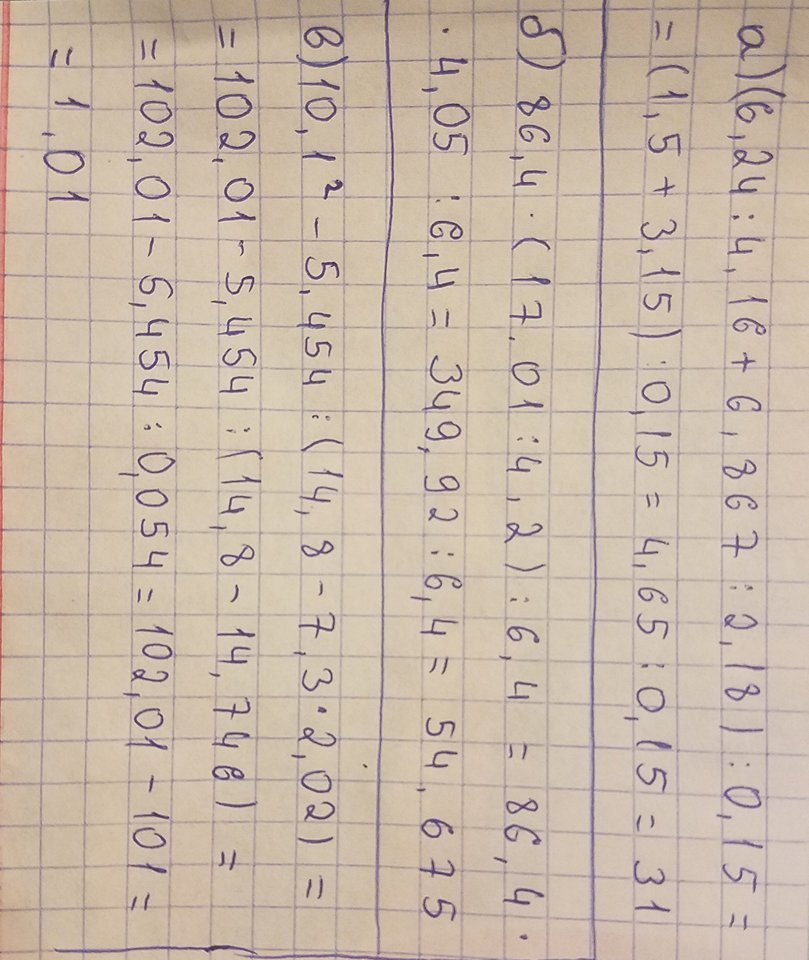 а)(6,24:4,16+6,867:2,18):0,15=
=(1,5+3,15):0,15=4,65:0,15=31
б) 86,4·(17,01:4,2):6,4=86,4·
·4,05:6,4=349,92:6,4=54,675
в)10,1²-5,454:(14,8-7,3·2,02)=
=102,01-5,454:(14,8-14,746)=
=102,01-5,454:0,054=102,01-101=
=1,01